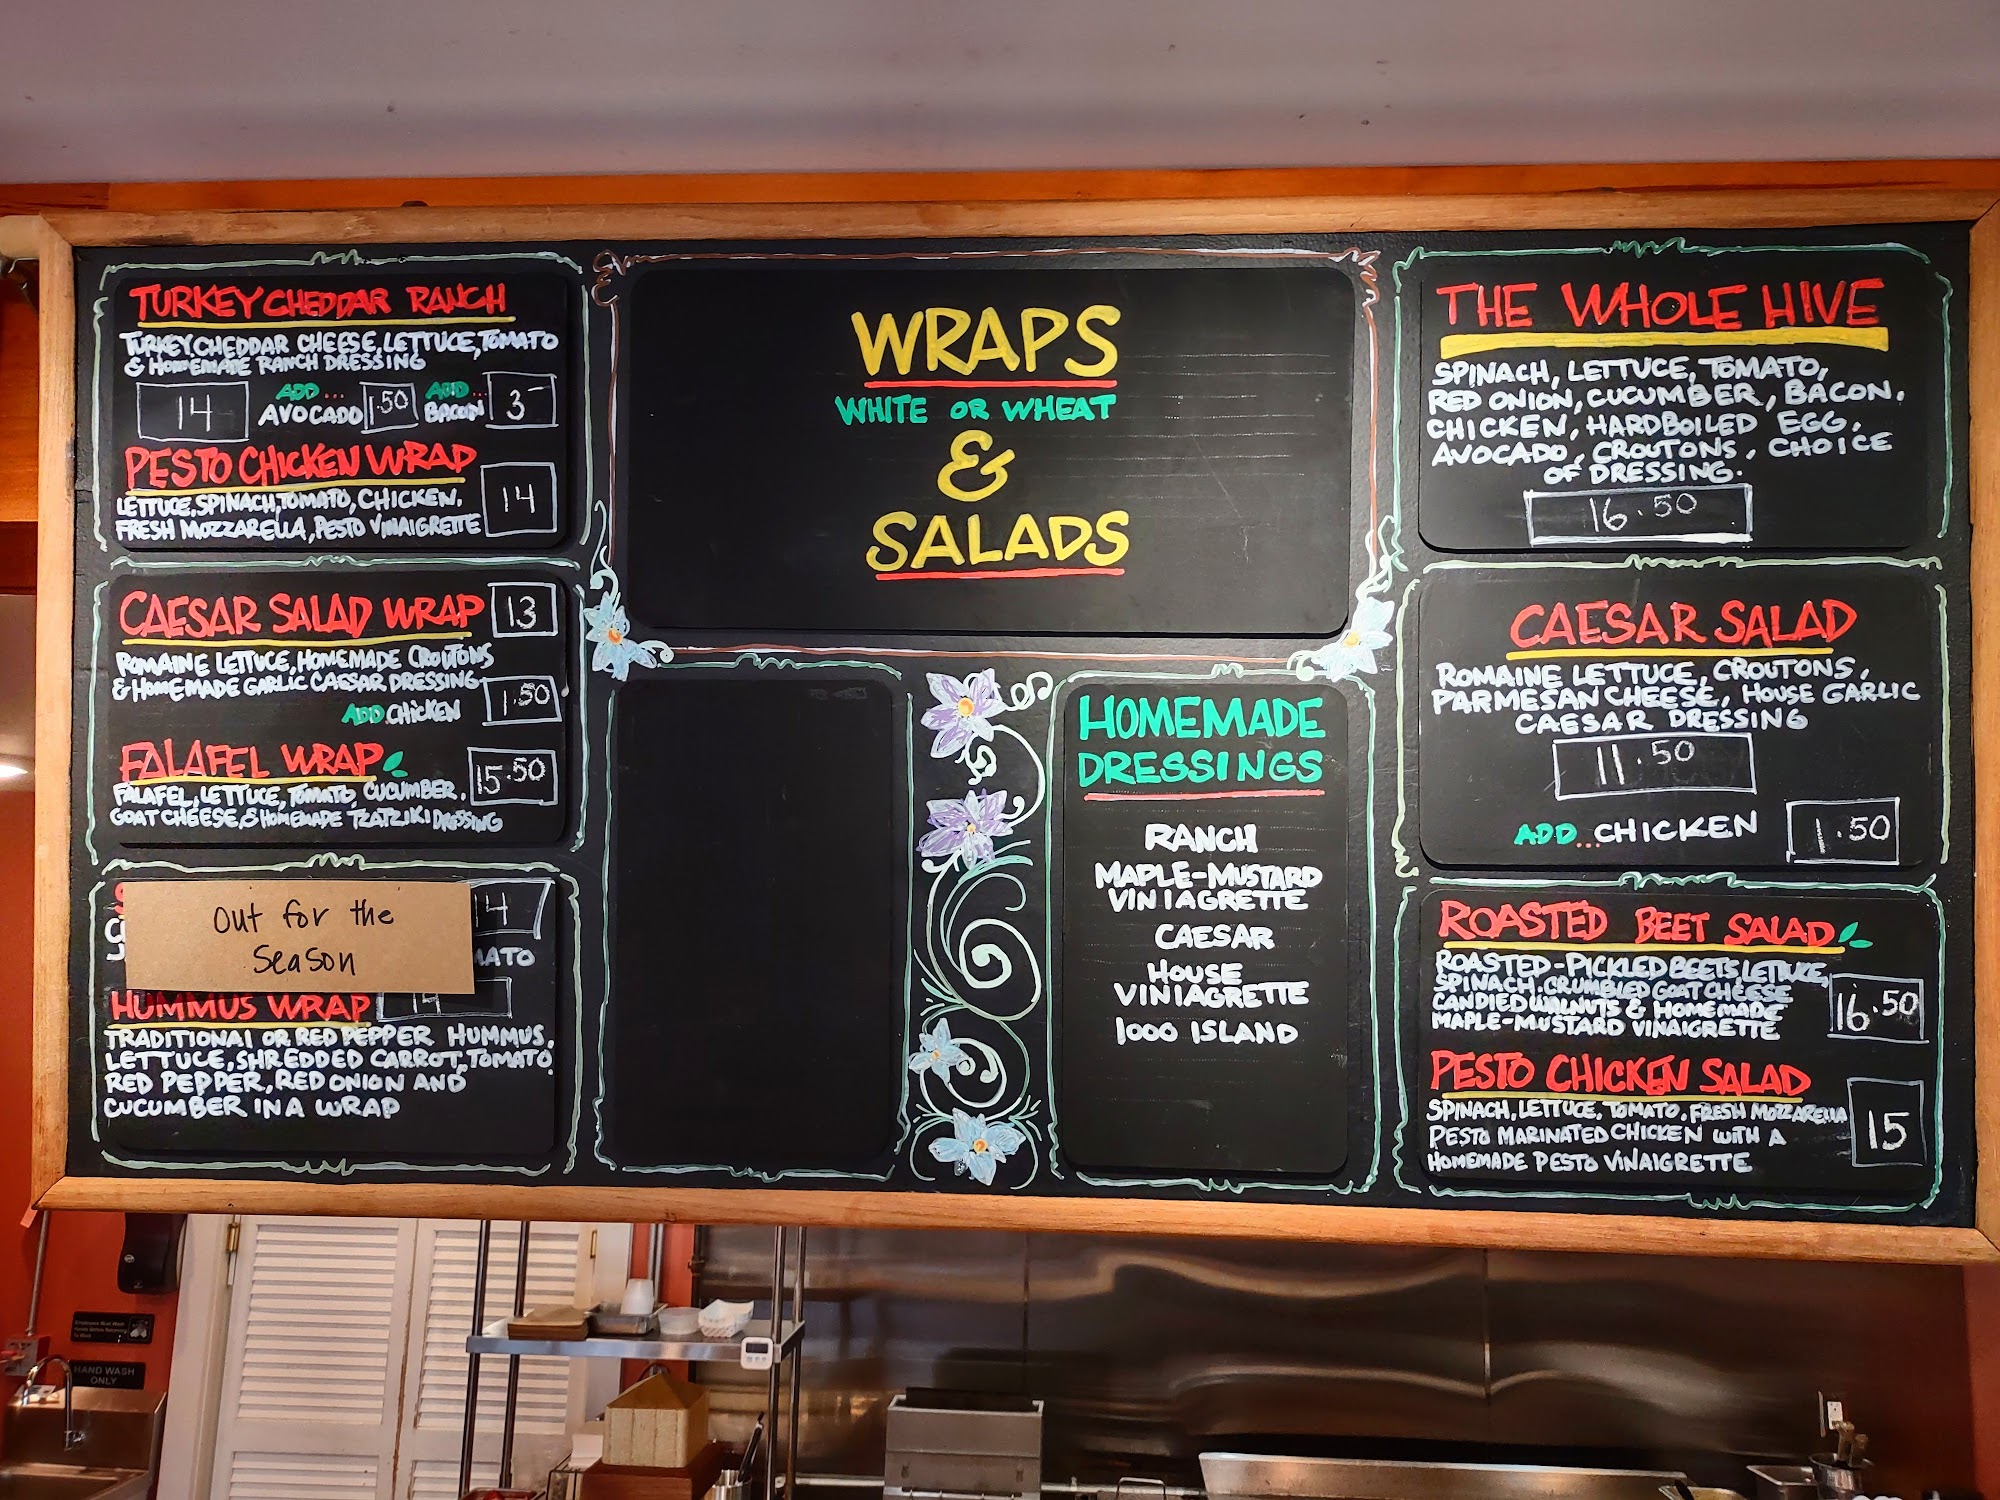 TURKEY CHEDDAR RANCH
TURKEY, CHEDDAR CHEESE, LETTUCE, TOMATO
& HOMEMADE RANCH DRESSING
14
ADD...
AVOCADO
1.50
ADD...
BACON
3
PESTO CHICKEN WRAP
LETTUCE, SPINACH, TOMATO, CHICKEN,
FRESH MOZZARELLA, PESTO VINAIGRETTE
14
CAESAR SALAD WRAP
13
ROMAINE LETTUCE, HOMEMADE CROUTONS
& HOMEMADE GARLIC CAESAR DRESSING
ADD CHICKEN
1.50
FALAFEL WRAP
15.50
FALAFEL, LETTUCE, TOMATO, CUCUMBER,
GOAT CHEESE, & HOMEMADE TZATZIKI DRESSING
Out for the
Season
14
HUMMUS WRAP
14
TRADITIONAL OR RED PEPPER HUMMUS,
LETTUCE, SHREDDED CARROT, TOMATO,
RED PEPPER, RED ONION AND
CUCUMBER IN A WRAP
WRAPS
WHITE OR WHEAT
&
SALADS
HOMEMADE
DRESSINGS
RANCH
MAPLE-MUSTARD
VINIAGRETTE
CAESAR
HOUSE
VINIAGRETTE
1000 ISLAND
THE WHOLE HIVE
SPINACH, LETTUCE, TOMATO,
RED ONION, CUCUMBER, BACON,
CHICKEN, HARDBOILED EGG,
AVOCADO, CROUTONS, CHOICE
OF DRESSING.
16.50
CAESAR SALAD
ROMAINE LETTUCE, CROUTONS,
PARMESAN CHEESE, HOUSE GARLIC
CAESAR DRESSING
11.50
ADD...CHICKEN
1.50
ROASTED BEET SALAD
ROASTED-PICKLED BEETS, LETTUCE,
SPINACH, CRUMBLED GOAT CHEESE
CANDIED WALNUTS & HOMEMADE
MAPLE-MUSTARD VINAIGRETTE
16.50
PESTO CHICKEN SALAD
SPINACH, LETTUCE, TOMATO, FRESH MOZZARELLA
PESTO MARINATED CHICKEN WITH A
HOMEMADE PESTO VINAIGRETTE
15
Employees Must Wash
Hands Before Returning
To Work
HAND WASH
ONLY